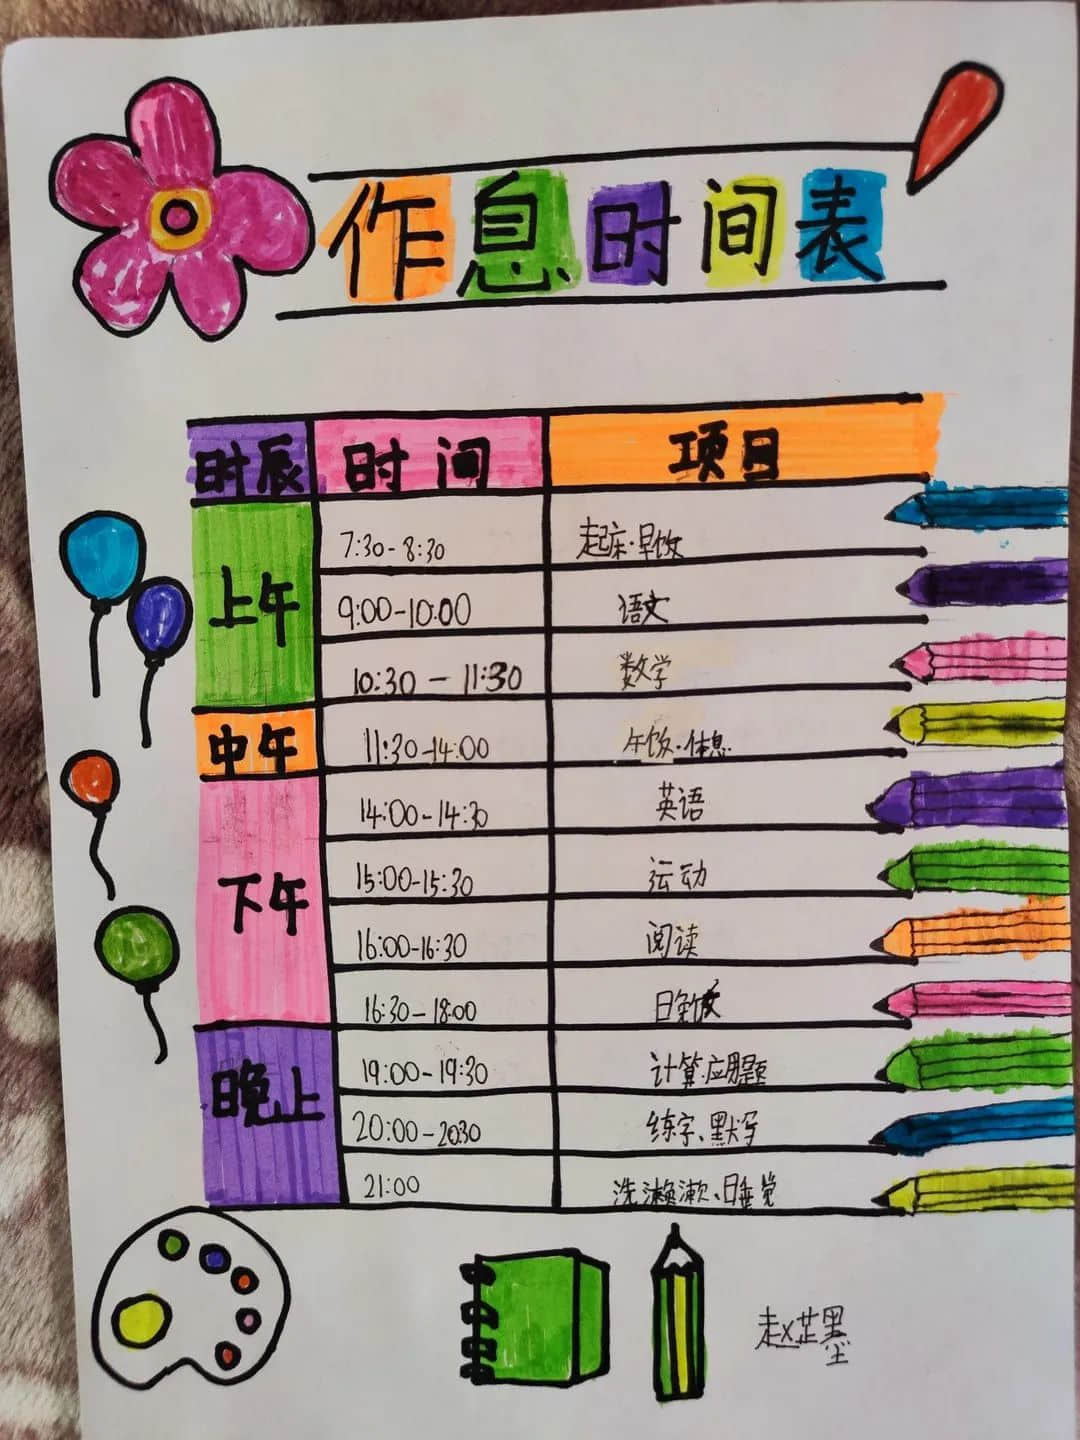 作息时间表
时辰 时间 项目
上午
7:30-8:30 起床·早饭
9:00-10:00 语文
10:30-11:30 数学
中午
11:30-14:00 午饭·休息
下午
14:00-14:30 英语
15:00-15:30 运动
16:00-16:30 阅读
16:30-18:00
晚上
19:00-19:30 计算.应用题
20:00-2030 练字、默写
21:00 洗漱、睡觉
赵芷墨